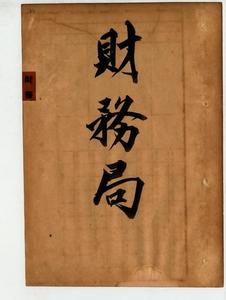 財務局
財務